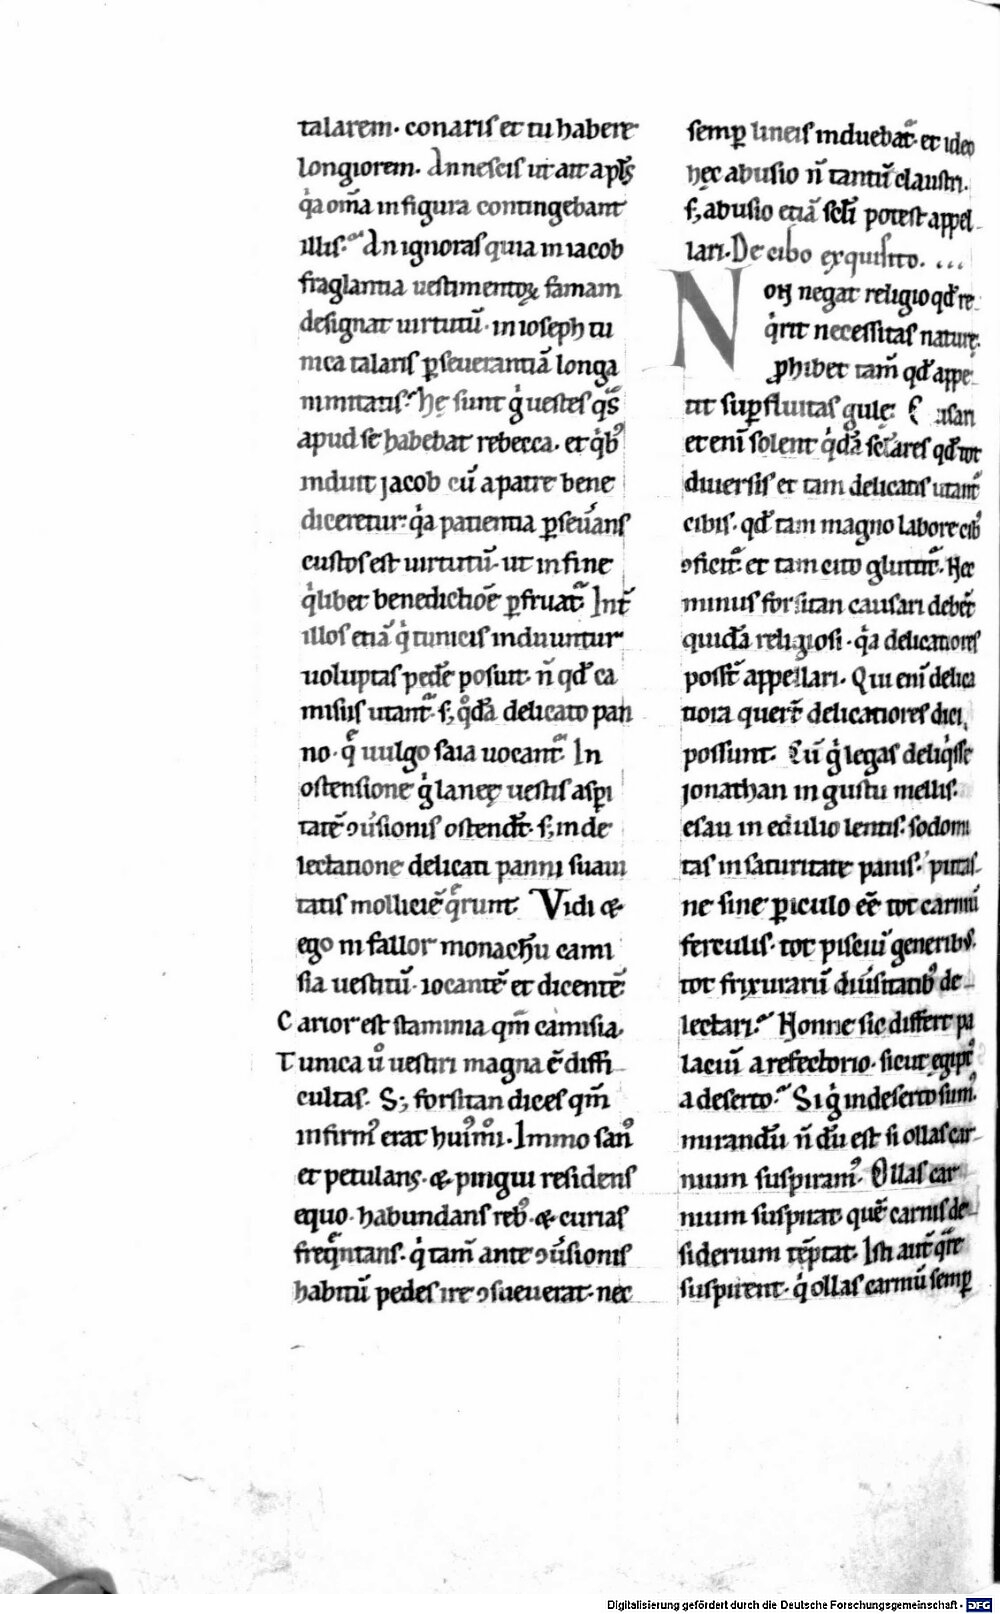 talarem. conaris et tu habere
longiorem. An nescis ut ait apl̅s
qͥa om̅a in figura contingebant
illis. An ignoras quia in iacob
fraglantia uestimentoꝝ famam
designat uirtutu̅. in ioseph tu
nica talaris ꝑseuerantia̅ longa
nimitatis. Hę sunt gͥ uestes qͣs
apud se habebat rebecca. et qͥbꝰ
induit jacob cu̅ a patre bene
diceretur. qͥa patientia ꝑseu̅ans
custos est uirtutu̅. ut in fine
qͥlibet benedictio̅e ꝑfruat᷑. Int̅
illos etia̅ qͥ tunicis induuntur
uoluptas pede̅ posuit. n̅ qd̅ ca
misiis utant᷑. sꝫ qͦda̅ delicato pan
no. qͤ uulgo saia uocant᷑. In
ostensione gͥ lanęę uestis aspi
tate̅ ꝯu̅sionis ostendt̅. sꝫ in de
lectatione delicati panni suaui
tatis mollicie̅ qͤrunt. Vidi &
ego ni fallor monachu̅ cami
sia uestitu̅. iocante̅ et dicente̅.
Carior est staminia qm̅ camisia.
Tunica uͦ uestiri magna e̅ diffi
cultas. Sꝫ forsitan dices qm̅
infirmꝰ erat huiꝰmͦi. Immo sanꝰ
et petulans. & pingui residens
equo. habundans rebꝰ. & curias
freqͤntans. qͥ tam̅ ante ꝯu̅sionis
habitu̅ pedes ire ꝯsueuerat. nec
semꝑ lineis induebat᷑. et ideo
hęc abusio n̅ tantu̅ claustri.
sꝫ abusio etia̅ scl̅i potest appel
lari. De cibo exquisito. ...
Non negat religio qd̅ re
qͥrit necessitas naturę.
ꝓhibet tam̅ qd̅ appe
tit suꝑfluitas gulę. asari
et eni̅ solent qͥda̅ sc̅lares qd̅ tot
diuersis et tam delicatis utant᷑
cibis. qd̅ tam magno labore cibꝰ
ꝯficit᷑ et tam cito glutit᷑. Nec
minus forsitan causari debet᷑
quida̅ religiosi. qͥa delicatiores
possn̅t appellari. Qui eni̅ delica
tiora quert̅ delicatiores dici
possunt. Cu̅ gͥ legas deliqͥsse
jonathan in gustu mellis.
esau in edulio lentis. sodomi
tas in saturitate panis. putas
ne sine ꝑiculo ee̅ tot carniu̅
ferculis. tot pisciu̅ generibꝰ.
tot frixuraru̅ diu̅sitatibꝰ de
lectari. Nonne sic differt pa
laciu̅ a refectorio. sicut egiptꝰ
a deserto. Si gͥ in deserto sumꝰ.
mirandu̅ n̅ du̅ est si ollas car
nium suspiramꝰ. Ollas car
nium suspirat. que̅ carnis de
siderium te̅ptat. Isti aut̅ qͣre
suspirent. qͥ ollas carniu̅ semꝑ